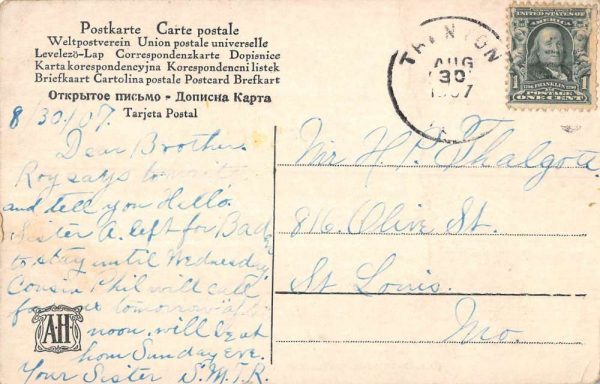 Postkarte Carte postale
Weltpostverein Union postale universelle
Levelező-Lap Correspondenzkarte Dopisnice
Karta korespondencyjna Korespondencni listek
Briefkaart Cartolina postale Postcard Brefkort
Открытое письмо - Дописна Карта
Tarjeta Postal
8/30/07.
Dear Brother.
Roy says to write
and tell you Hello.
Sister A. left for Baden
to stay until Wednesday
Cousin Phil will call
for me tomorrow after
noon. will be at
hom Sunday Eve.
Your Sister S.M.T.R.
A·H
TRENTON
AUG
30
1907
UNITED STATES OF AMERICA
FRANKLIN
POSTAGE
1 ONE CENT 1
Mr H. P. Thalgott
816. Olive St.
St Louis.
Mo.